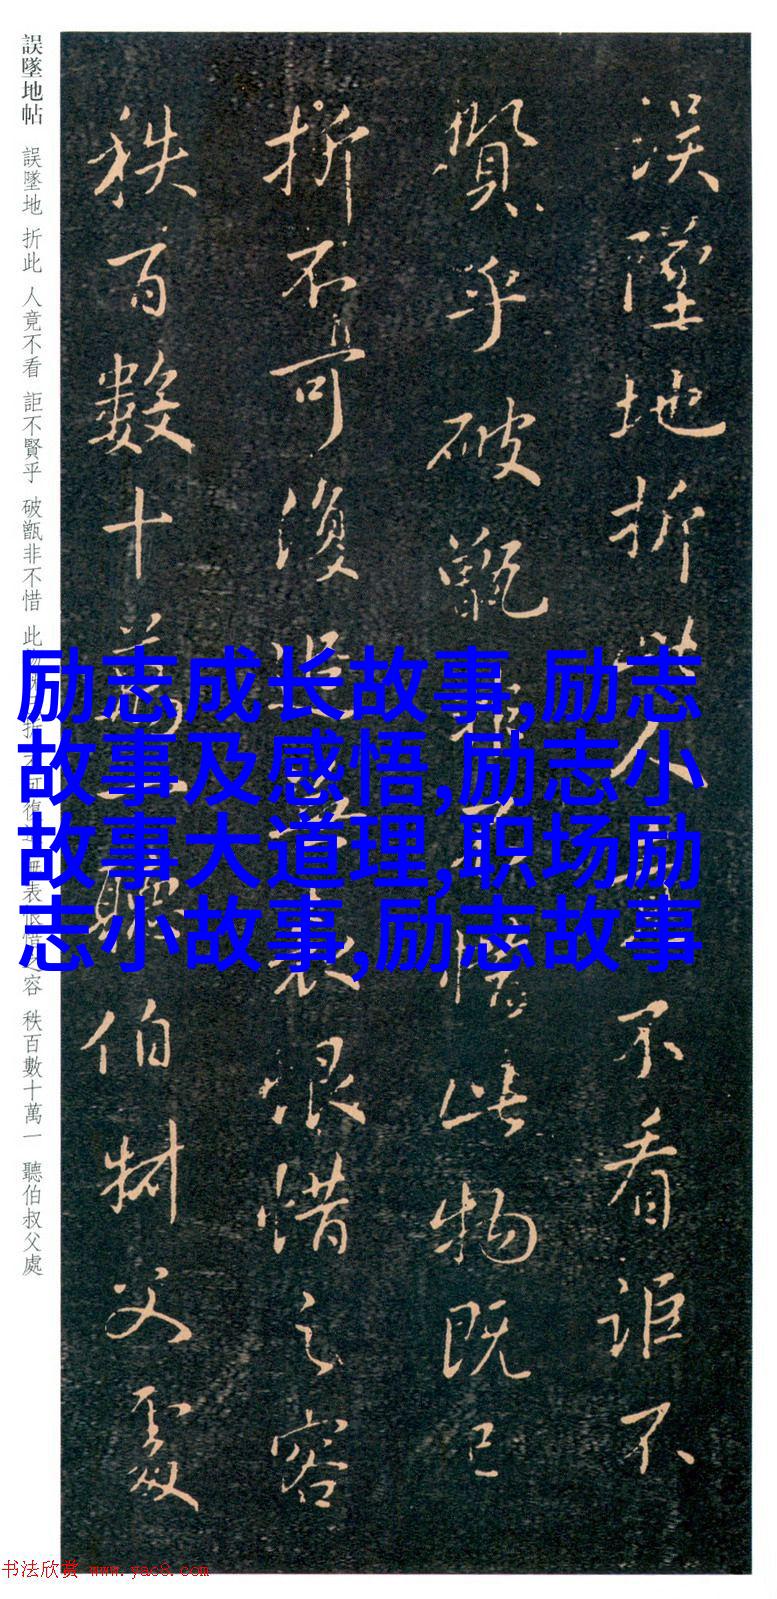 誤墜地折此人不看詎不
賢乎破甑非不惜此物既已
折不可復追無表恨惜之容
秩百數十萬一聽伯叔父處
誤墜地帖 誤墜地 折此 人竟不看 詎不賢乎 破甑非不惜 此折不可復無表恨惜之容 秩百數十萬一 聽伯叔父處
励志成长故事,励志
故事及感悟,励志小
故事大道理,职场励
志小故事,励志故事
书法欣赏 www.yac8.com